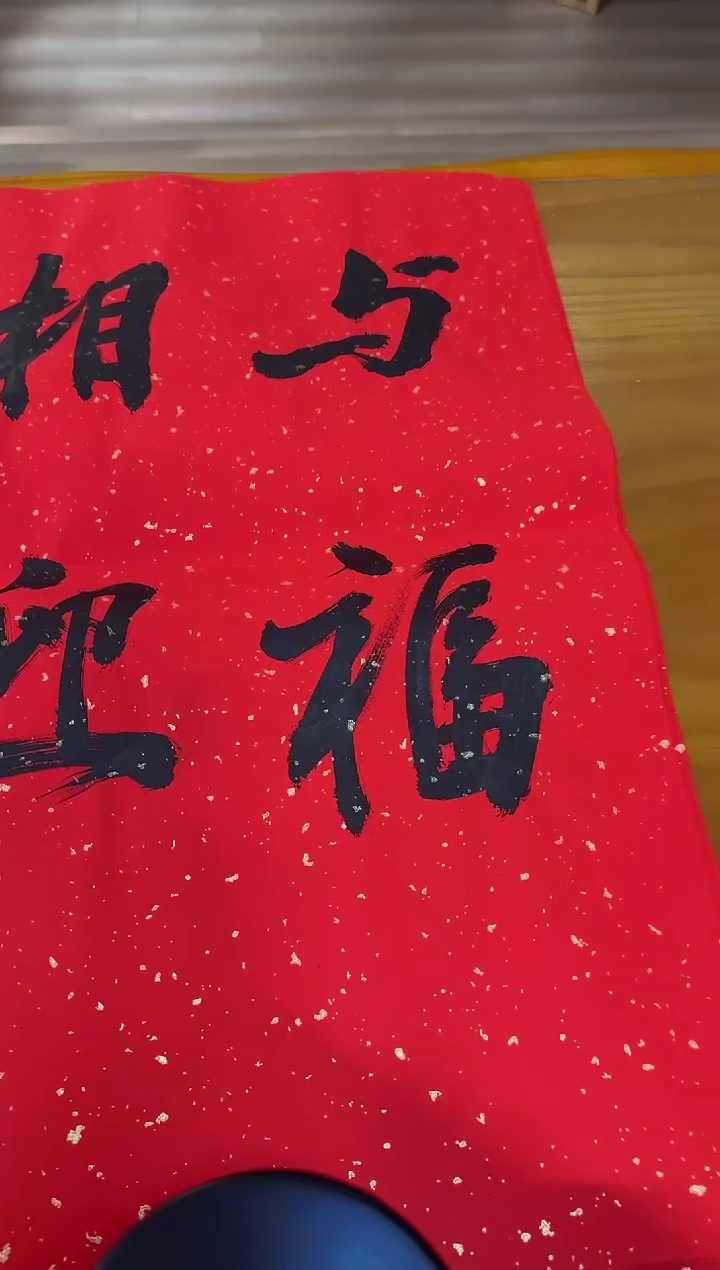 与福
相迎